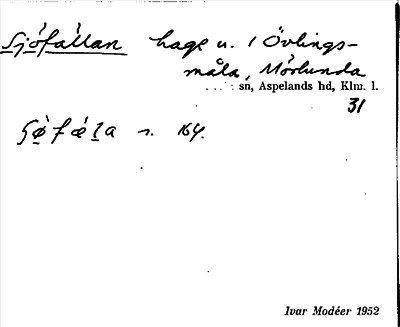 Sjöfállan hage u. 1 Övlings-
måla, Mörlunda
sn, Aspelands hd, Klm. l.
31
s. 164.
Ivar Modéer 1952